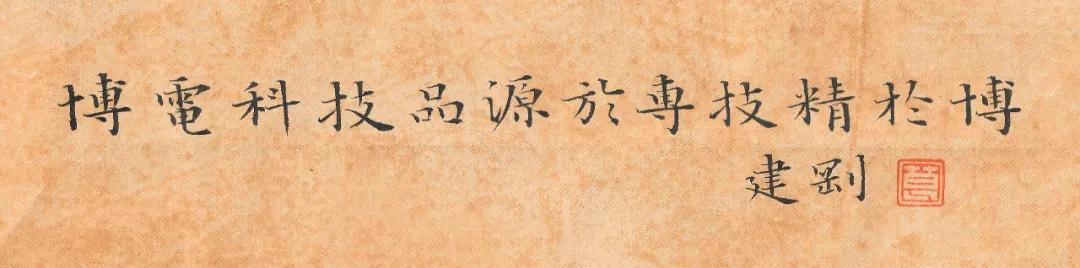 博電科技品源於專技精於博
建剛